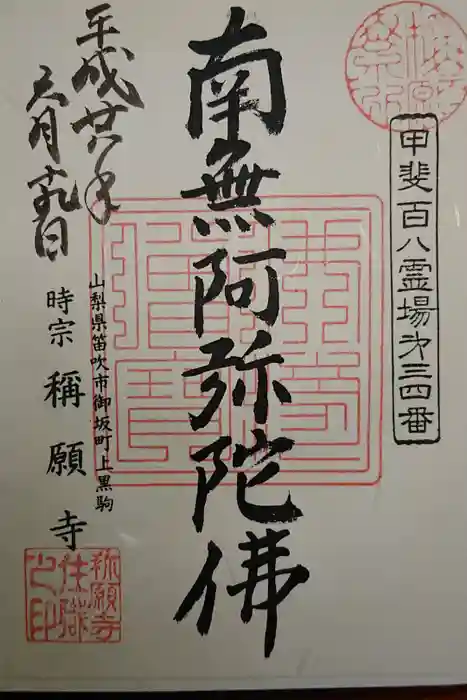 甲斐百八霊場第三四番
南無阿弥陀佛
平成廿六年
六月十九日
山梨県笛吹市御坂町上黒駒
時宗 稱願寺
称願寺住職之印